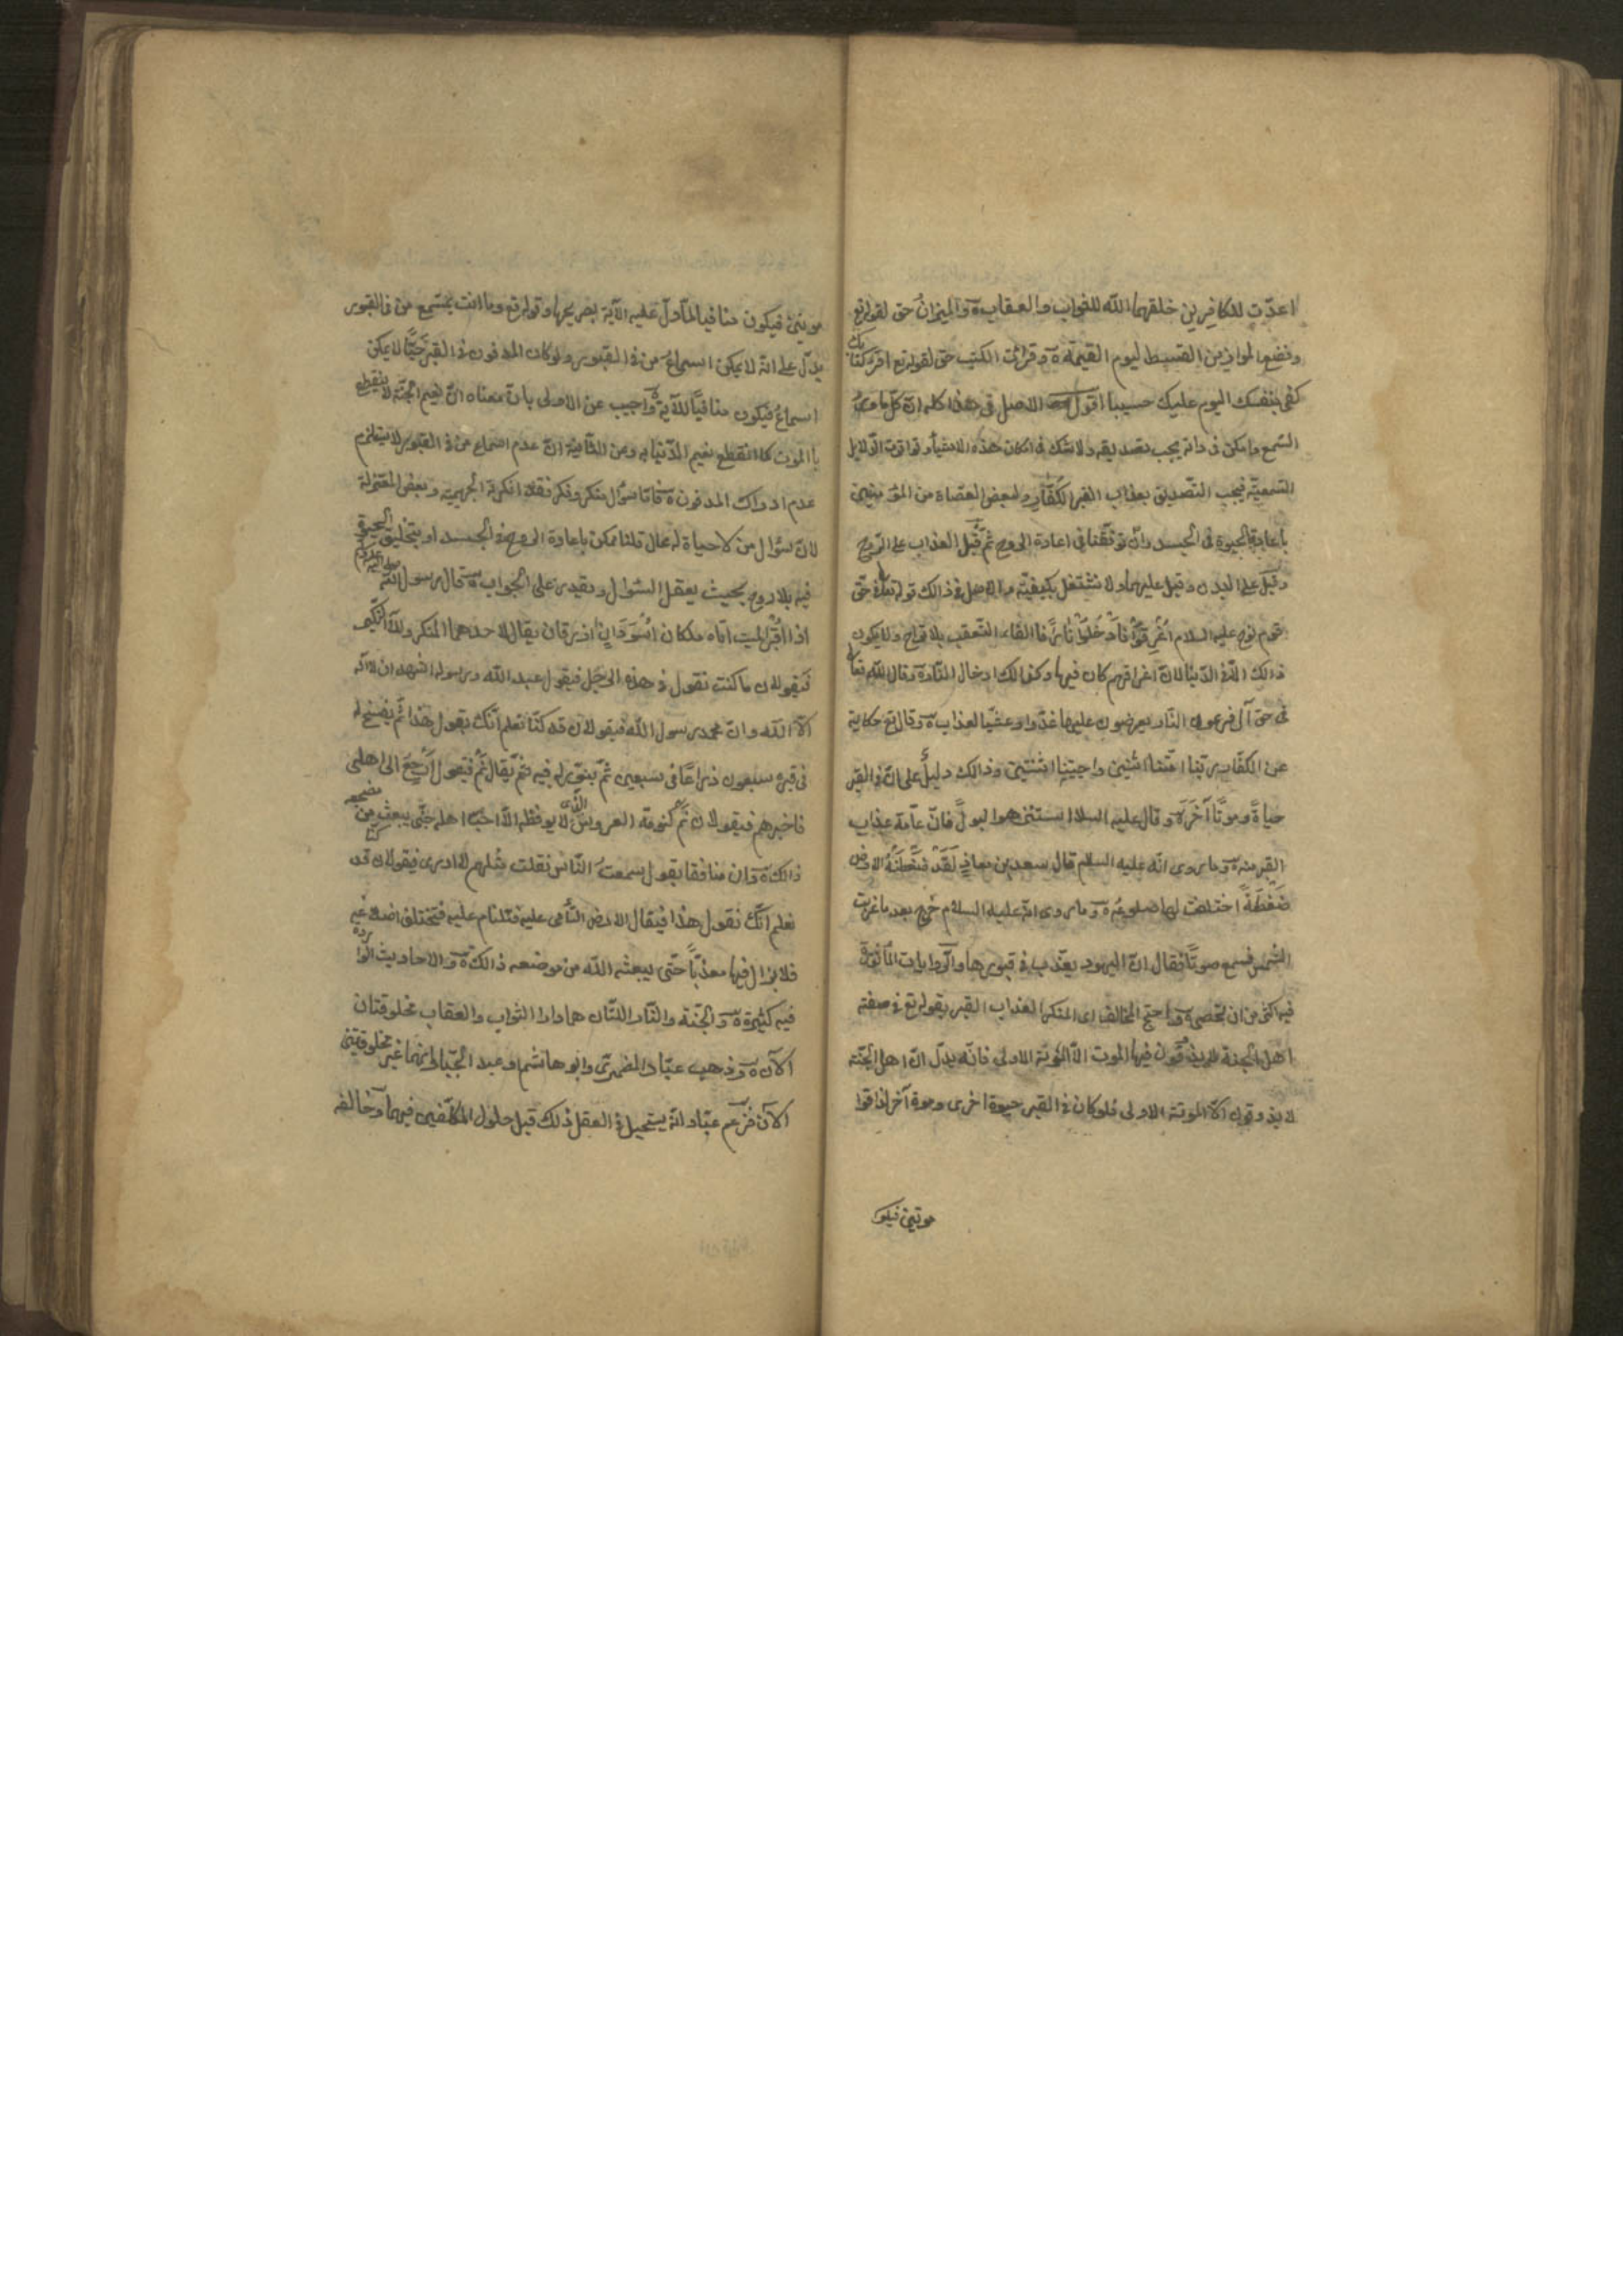 اعدّت للكافرين خلقهما الله للثواب والعقاب ة والميزان حق لقوله تع
ونضع الموازين القسط ليوم القيمة ة وقرائت الكتب حق لقوله تع اقرء كتابك
كفى بنفسك اليوم عليك حسيبا اقول الاصل فى هذا كله ان كل ما
السّمع وامكن فى ذاته يجب تصديقه ولا شك فى امكان هذه الاشياء وتوافق الدلايل
السّمعيّة فيجب التّصديق بعذاب القبر للكفّار ولبعض العصاة من المؤمنين
باعادة الحيوة فى الجسد وان توقّفنا فى اعادة الروح ثمّ قيل العذاب على الرّوح
وقيل على البدن وقيل عليهما ولا نشتغل بكيفيّته والاصل فى ذالك قوله تعالى فى حق
قوم نوح عليه السلام اغرقوا فادخلوا نارا فا الفاء التّعقب بلا تراخ ولا يكون
ذالك الّا فى الدّنيا لانّ اغراقهم كان فيها وكذالك ادخال النّار ة وقال الله تعالى
فى حق آل فرعون النّار يعرضون عليها غدّوا وعشيّا لعذاب ة وقال تع حكاية
عن الكفّار ربّنا امتّنا اثنين واحيتنا اثنتين وذالك دليل على انّ فى القبر
حياةً وموتًا آخر ة وقال عليه السلام استنزهوا البول فانّ عامّة عذاب
القبر منه ة وما روى انّه عليه السلام قال سعد بن معاذ لقد ضغطته الارض
ضغطة اختلفت لها ضلوعه ة وما روى انّه عليه السلام خرج بعد ما غربت
الشّمس فسمع صوتًا فقال انّ اليهود يعذّب فى قبورها والرّوايات المأثورة
فيه اكثر من ان تحصى ة واحتج المخالف اى المنكر لعذاب القبر بقوله تع فى صفة
اهل الجنة لا يذقون فيها الموت الّا الموتة الاولى فانّه يدلّ انّ اهل الجنّة
لا يذوقون الّا الموتة الاولى فلو كان فى القبر حيوة اخرى وموة آخر لذاقوا
موتين فيكو
موتين فيكون منافيا لما دلّ عليه الآية بصريحها وقوله تع وما انت بمسمع من فى القبور
يدلّ على انه لا يمكن اسماع من فى القبور ولو كان المدفون فى القبر حيّا لا يمكن
اسماع فيكون منافيًا للآية ة واجيب عن الاولى بان معناه انّ نعيم الجنّة لا ينقطع
بالموت كما انقطع نعيم الدّنيا به وعن الثّانية انّ عدم اسماع من فى القبور لا يستلزم
عدم ادراك المدفون ة فامّا سؤال منكر ونكر فقد انكرته الجهميّة وبعض المعتزلة
لانّ سؤال من لا حياة له محال قلنا ممكن باعادة الروح فى الجسد او بتخليق الحيوة
فيه بلا روح بحيث يعقل السّؤال ويقدر على الجواب ة قال رسول الله صلى الله عليه وسلم
اذا اقبر الميت اتاه ملكان اسودان ازرقان يقال لاحدهما المنكر وللآخر النّكير
فيقولان ما كنت تقول فى هذه الرجل فيقول عبد الله ورسوله اشهد ان لا اله
الّا الله وانّ محمد رسول الله فيقولان قد كنّا نعلم انّك تقول هذا ثمّ يفسح له
فى قبره سبعون ذراعًا فى سبعين ثمّ ينوّر له فيه ثمّ يقال نم فيقول ارجع الى اهلى
فاخبرهم فيقولان نم كنومة العروس الّذى لا يوقظه الّا احبّ اهله حتّى يبعثه من مضجعه
ذالك ة وان منافقا يقول سمعت النّاس فقلت مثلهم لا ادرى فيقولان قد كنّا
نعلم انّك تقول هذا فيقال الارض التأمى عليه فتلتام عليه فتختلف اضلاعه
فلا يزال فيها معذّبا حتّى يبعثه الله من موضعه ذالك ة والاحاديث الواردة
فيه كثيرة ة والجنّة والنّار اللتان هما دارا الثواب والعقاب مخلوقتان
الآن ة وذهب عبّاد الضمرى وابو هاشم وعبد الجبّار انهما غير مخلوقتين
الآن فزعم عبّاد انه يستحيل فى العقل ذلك قبل حلول المكلّفين فيهما وخالفه